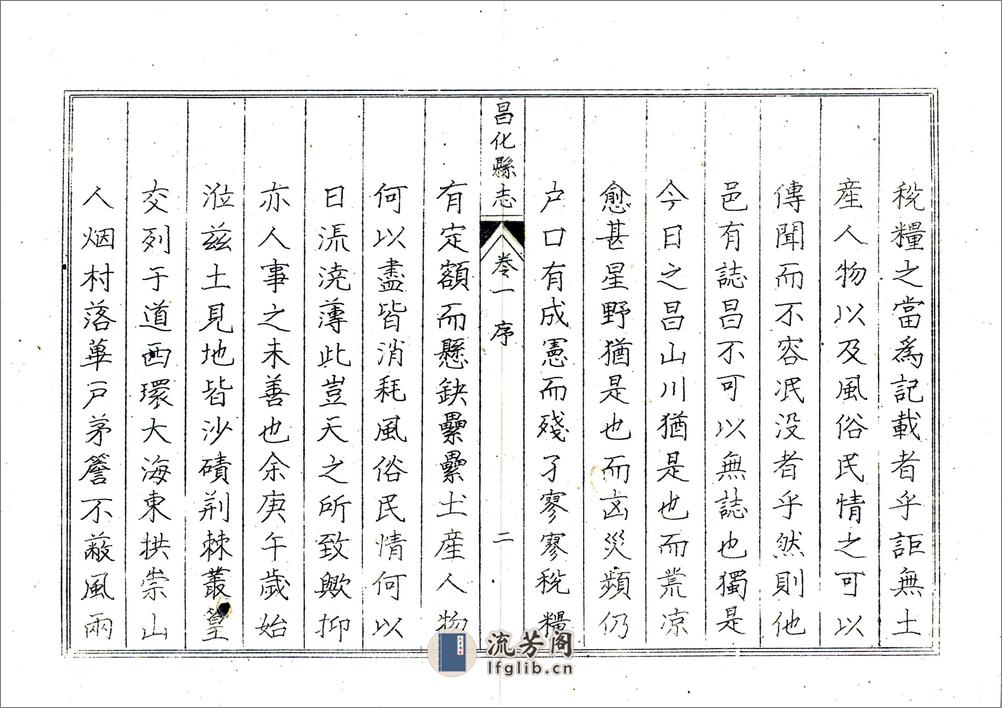 稅糧之當爲記載者乎詎無土
産人物以及風俗民情之可以
傳聞而不容泯没者乎然則他
邑有誌昌不可以無誌也獨是
今日之昌山川猶是也而荒凉
愈甚星野猶是也而凶災頻仍
户口有成憲而殘孑寥寥稅糧
昌化縣志
卷一 序 二
有定額而懸缺纍纍土産人物
何以盡皆消耗風俗民情何以
日流澆薄此豈天之所致歟抑
亦人事之未善也余庚午歲始
涖兹土見地皆沙磧荆棘叢篁
交列于道西環大海東拱崇山
人烟村落蓽户茅簷不蔽風雨
流芳阁
lfglib.cn